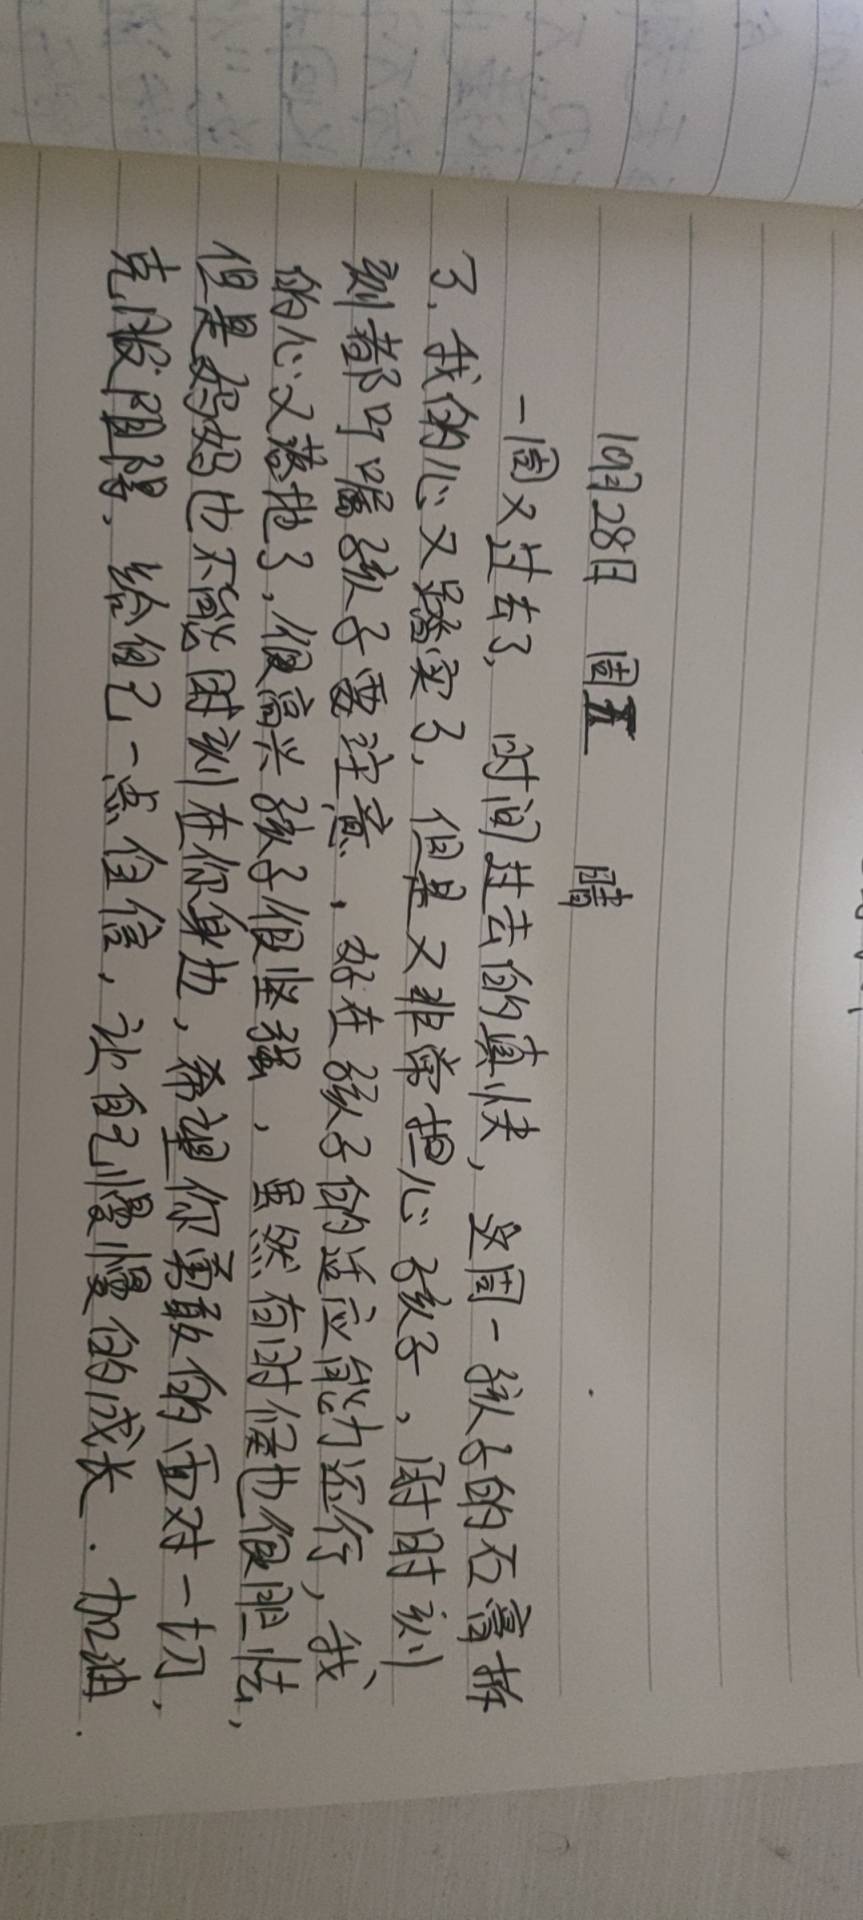 10月28日 周五 晴
一周又过去了, 时间过去的真快, 这周一孩子的石膏拆
了, 我的心又踏实了, 但是又非常担心孩子, 时时刻
刻都叮嘱孩子要注意, 好在孩子的适应能力还行, 我
的心又落地了, 很高兴孩子很坚强, 虽然有时候也很胆怯,
但是妈妈也不能时刻在你身边, 希望你勇敢的面对一切,
克服阻障, 给自己一点自信, 让自己慢慢的成长. 加油.